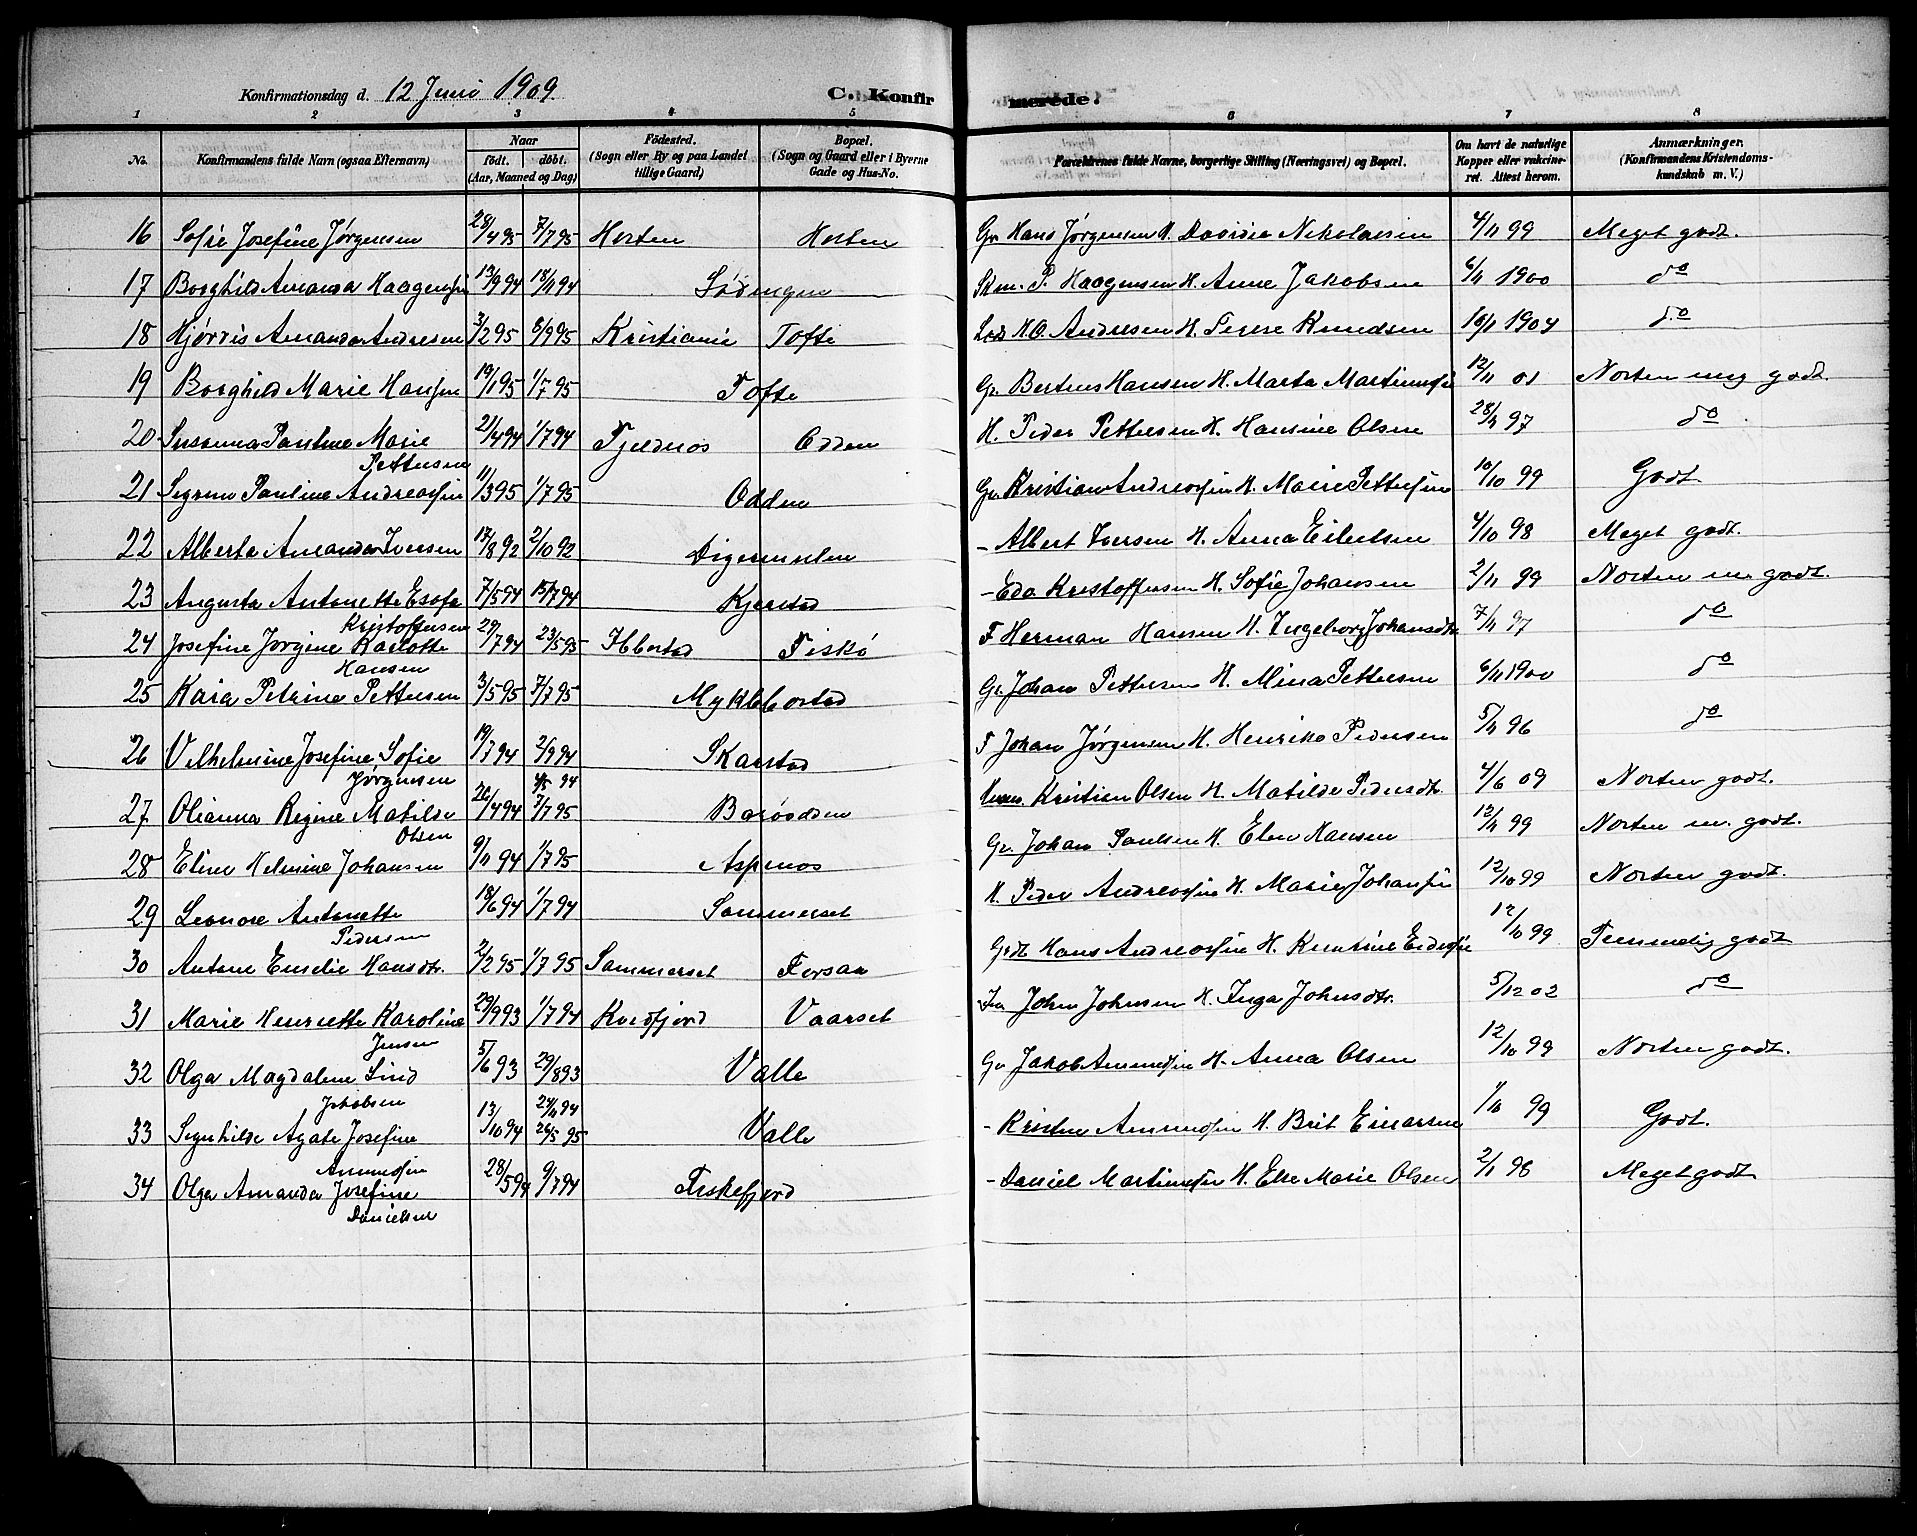 Konfirmationsdag d. 12 Juni 1909. C. Konfirmerede.
1 2 3 4 5 6 7 8
No. Konfirmandens fulde Navn (ogsaa Efternavn) Naar født. døbt. (Aar, Maaned og Dag) Fødested. (Sogn eller By og paa Landet tillige Gaard) Bopæl. (Sogn og Gaard eller i Byerne Gade og Hus-No. Forældrenes fulde Navne, borgerlige Stilling (Næringsvei) og Bopæl. Om havt de naturlige Kopper eller vakcineret. Attest herom. Anmærkninger. (Konfirmandens Kristendomskundskab m. V.)
16 Sofie Josefine Jørgensen 28/4 95 7/7 95 Horten Horten Gr Hans Jørgensen H. Davida Nikolaisen 4/11 99 Meget godt.
17 Borghild Amanda Haagensen 13/9 94 18/11 94 Lødingen P. Haagensen H. Anne Jakobsen 6/11 1900 do
18 Hjørdis Amanda Andresen 3/2 95 8/9 95 Kristiania Tofte H.O. Andresen H. Knudsen 10/1 1904 do
19 Borghild Marie Hansen 19/1 95 1/7 95 Tofte Gr. Berteus Hansen H. Marta Martinussen 12/11 01 Norten meg godt.
20 Susanna Pauline Marie Pettersen 21/4 94 1/7 94 Fjeldnes Odden H. Peder Pettersen H. Hansine Olsen 28/9 97 do
21 Sigrun Pauline Andreassen 11/3 95 1/7 95 Odden Gr Kristian Andreassen H. Marie Pettersen 10/10 99 Godt
22 Alberta Amanda Iversen 17/8 92 2/10 92 Digermulen - Albert Iversen H. Anna Eilertsen 4/10 98 Meget godt.
23 Augusta Antonette Esofa Kristoffersen 7/5 94 15/7 94 Kjerstad - Edv Kristoffersen H. Sofie Johansen 2/11 99 Norten m godt.
24 Josefine Jørgine Karlotte Hansen 29/7 94 23/5 95 Ibestad Fiskø F Herman Hansen H. Ingeborg Johansdtr 7/11 97 do
25 Kaia Petrine Pettersen 3/5 95 7/7 95 Myklebostad Gr. Johan Pettersen H. Mina Pettersen 6/11 1900 do
26 Vilhelmine Josefine Sofie Jørgensen 19/7 94 2/9 94 Skarstad F Johan Jørgensen H. Henrikke Pedersen 5/11 96 do
27 Olianna Regine Matilde Olsen 26/4 94 4/5 94 7/7 95 Barøodden Kristian Olsen H. Matilde Pedersdtr. 4/6 09 Norten godt.
28 Eline Helmine Johansen 9/11 94 1/7 95 Aspenes Gr. Johan Paulsen H. Elen Hansen 12/11 99 Norten m. godt.
29 Leonore Antonette Pedersen 18/6 94 1/7 94 Sommerset H. Peder Andreassen H. Marie Johansen 12/10 99 Norten godt.
30 Antone Emelie Hansdtr. 2/2 95 1/7 95 Sommerset Forsaa Hans Andreassen H. 12/10 99 Temmelig godt
31 Marie Henriette Karoline Jensen 29/9 93 1/7 94 Kvedfjord Vaarset John Johnsen H. Inga Johnsdtr. 5/12 02 do
32 Olga Magdalene Lind Jakobsen 5/6 93 29/8 93 Valle Gr Jakob Amundsen H. Anna Olsen 12/10 99 Norten godt.
33 Signhilde Agate Josefine Amundsen 13/10 94 24/11 94 26/5 95 Valle - Kristen Amundsen H. Brit Einarsen 1/10 99 Godt.
34 Olga Amanda Josefine Danielsen 28/5 94 9/7 94 Fiskefjord - Daniel Martinussen H. Else Marie Olsen 2/1 98 Meget godt